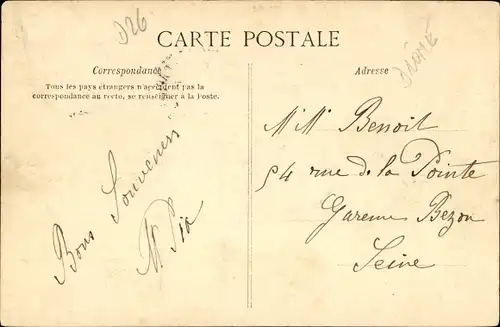 D26
DRÔME
CARTE POSTALE
Correspondance
Tous les pays étrangers n'acceptent pas la
correspondance au recto, se renseigner à la Poste.
Bons Souvenirs
Adresse
Mr Mr Benoit
54 rue de la Pointe
Garenne Bezon
Seine